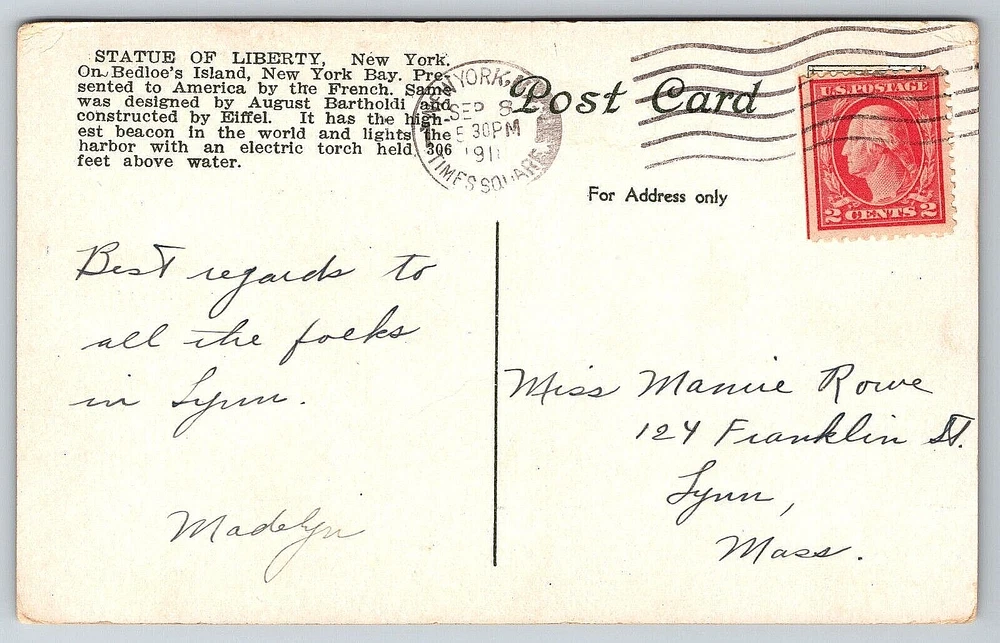 STATUE OF LIBERTY, New York.
On Bedloe's Island, New York Bay. Pre-
sented to America by the French. Same
was designed by August Bartholdi and
constructed by Eiffel. It has the high-
est beacon in the world and lights the
harbor with an electric torch held 306
feet above water.
YORK, N.
SEP 8
5 30PM
191
TIMES SQUARE
Post Card
For Address only
U.S. POSTAGE
2 CENTS 2
Best regards to
all the folks
in Lynn.
Madelyn
Miss Mamie Rowe
124 Franklin St.
Lynn,
Mass.